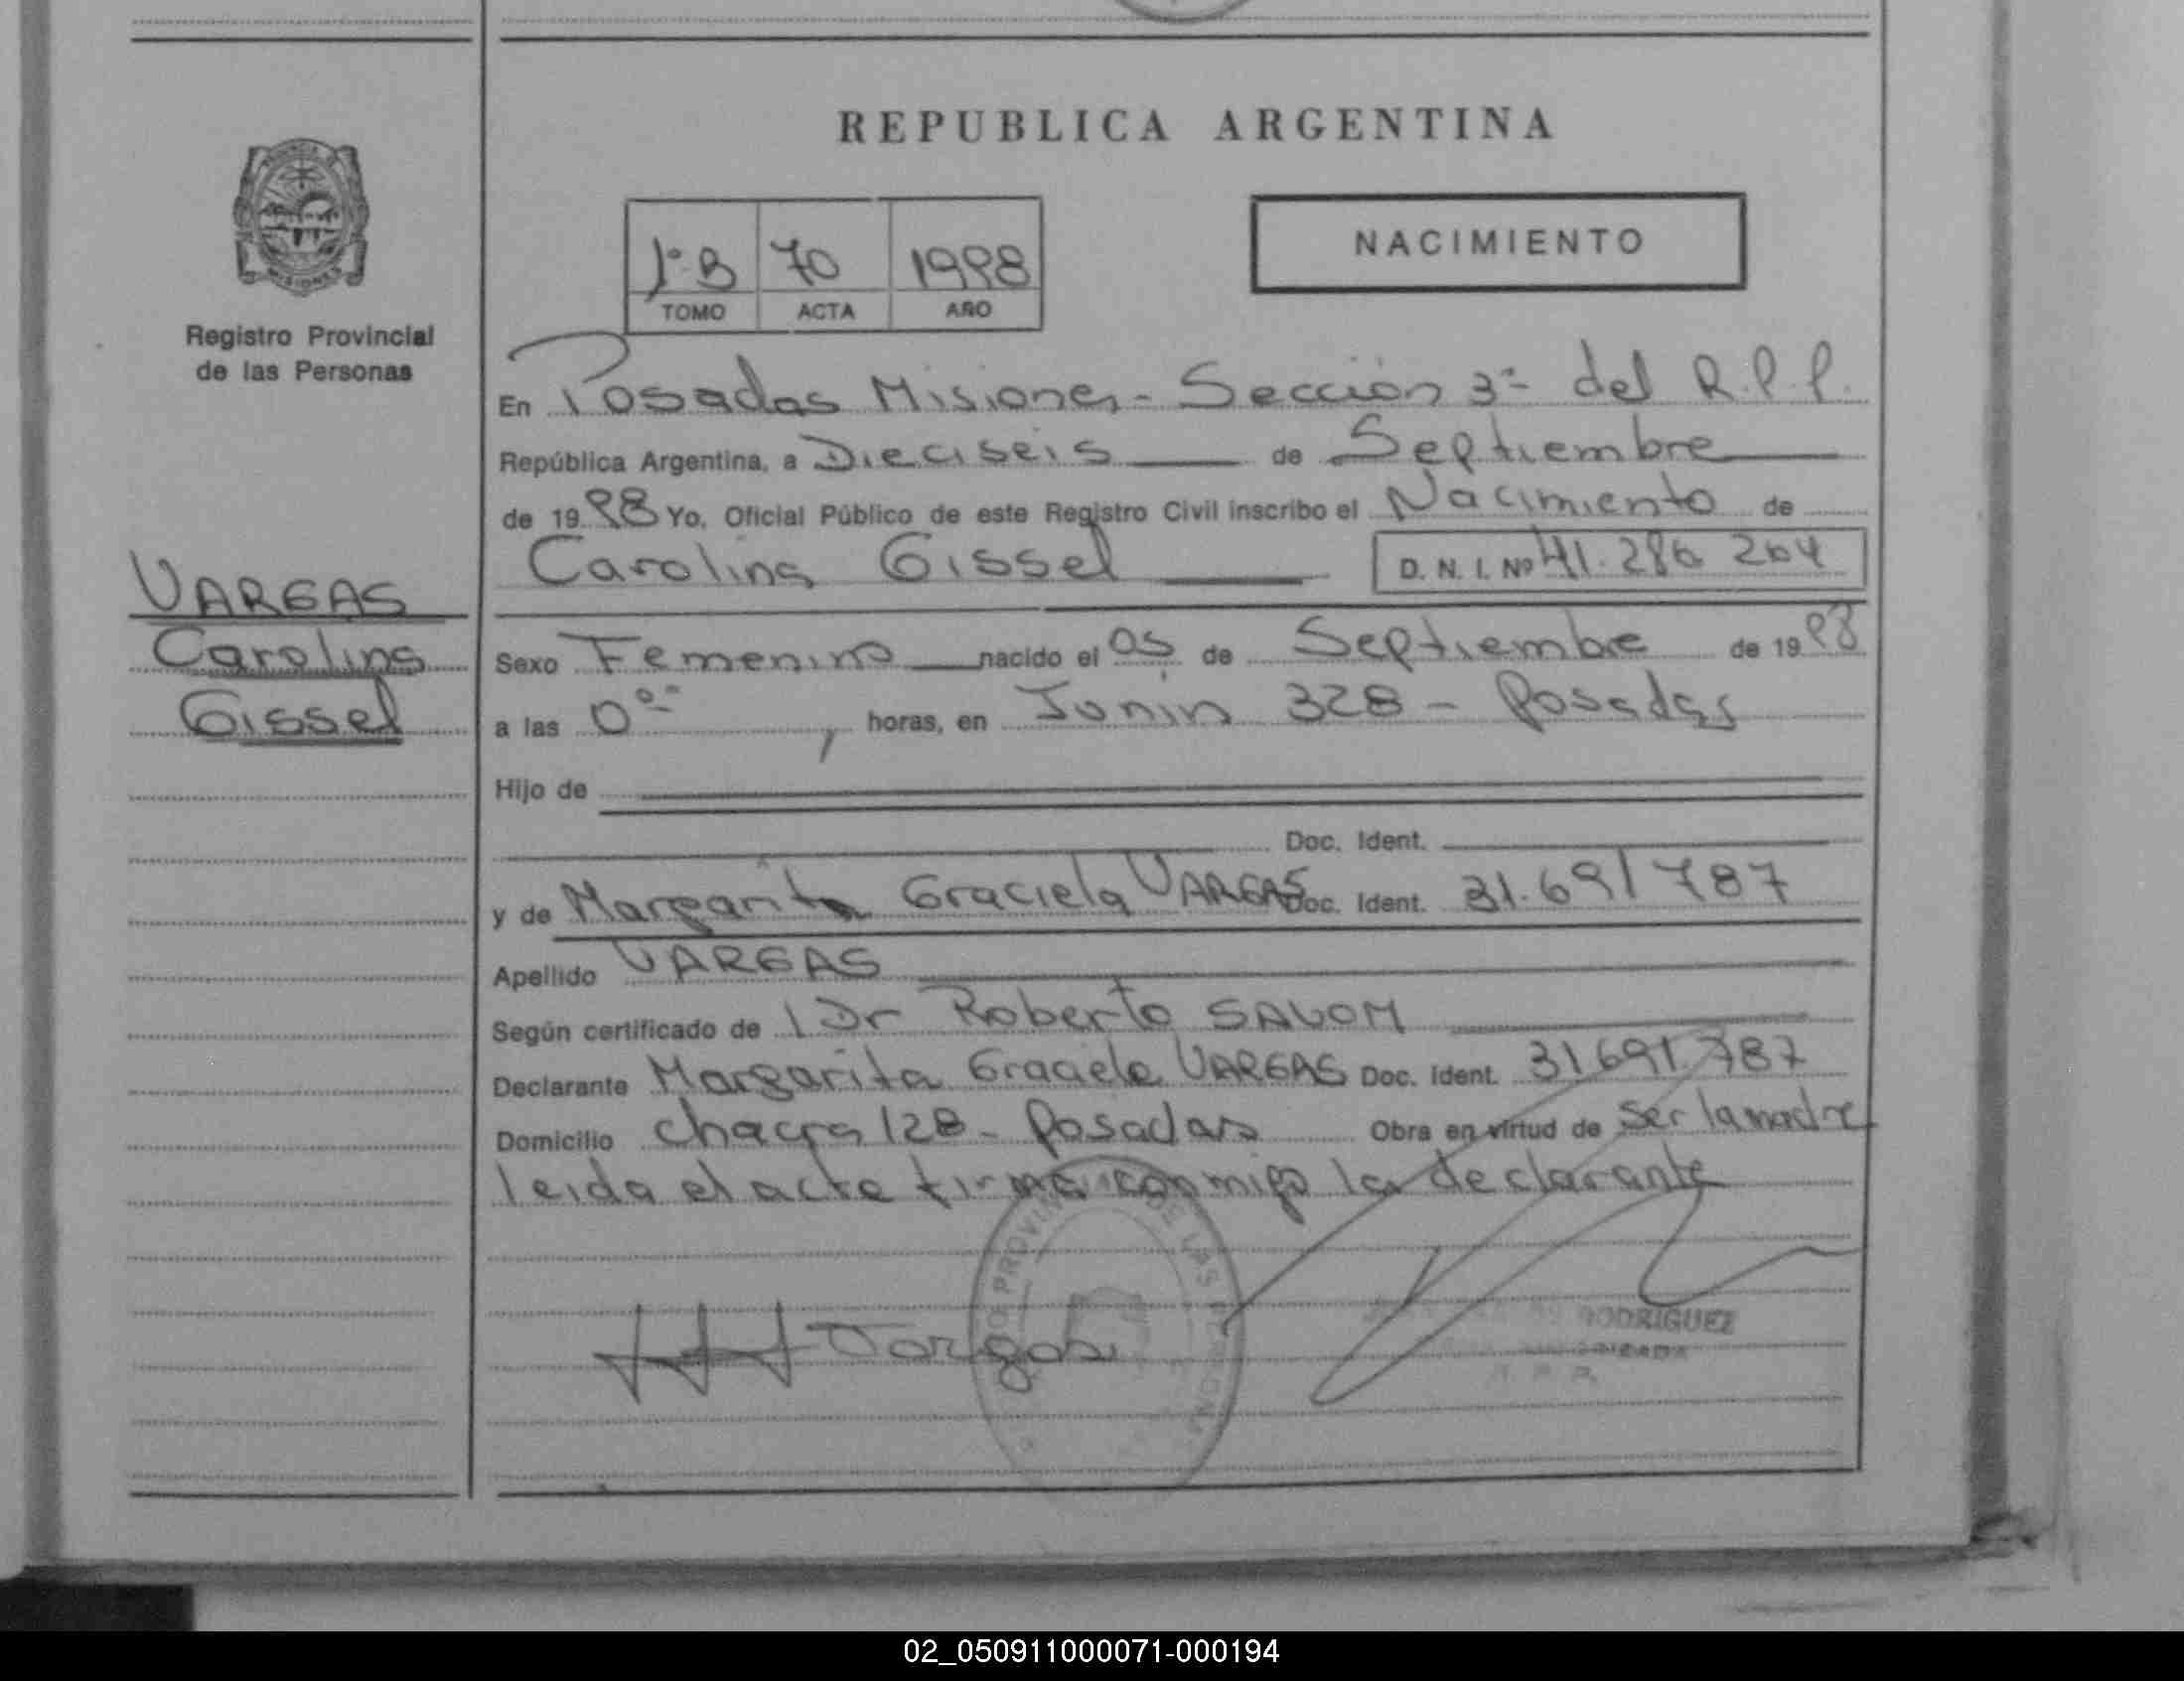 REPUBLICA ARGENTINA
1º B 70 1998
TOMO ACTA AÑO
NACIMIENTO
MISIONES
Registro Provincial
de las Personas
En Posadas Misiones - Sección 3ª del R.P.P.
República Argentina, a Dieciseis de Septiembre
de 1998 Yo, Oficial Público de este Registro Civil inscribo el Nacimiento de
Carolina Gissel D. N. I. Nº 41.286 264
VARGAS
Carolina
Gissel
Sexo Femenino nacido el 05 de Septiembre de 1998
a las 0ºº, horas, en Junin 328 - Posadas
Hijo de
Doc. Ident.
y de Margarita Graciela VARGAS Doc. Ident. 31.691787
Apellido VARGAS
Según certificado de Dr Roberto SALOM
Declarante Margarita Graciela VARGAS Doc. Ident. 31691.787
Domicilio chacra 128 - Posadas Obra en virtud de Ser la madre
leida el acta firma conmigo la declarante
Vargas
RODRIGUEZ
02_050911000071-000194